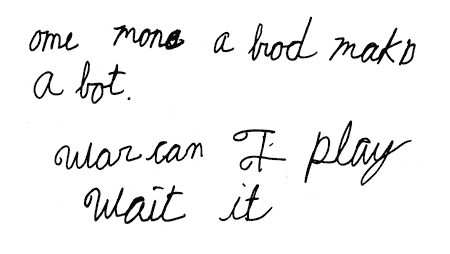 ome mons a brod makn
a bot.
war can I play
Wait it